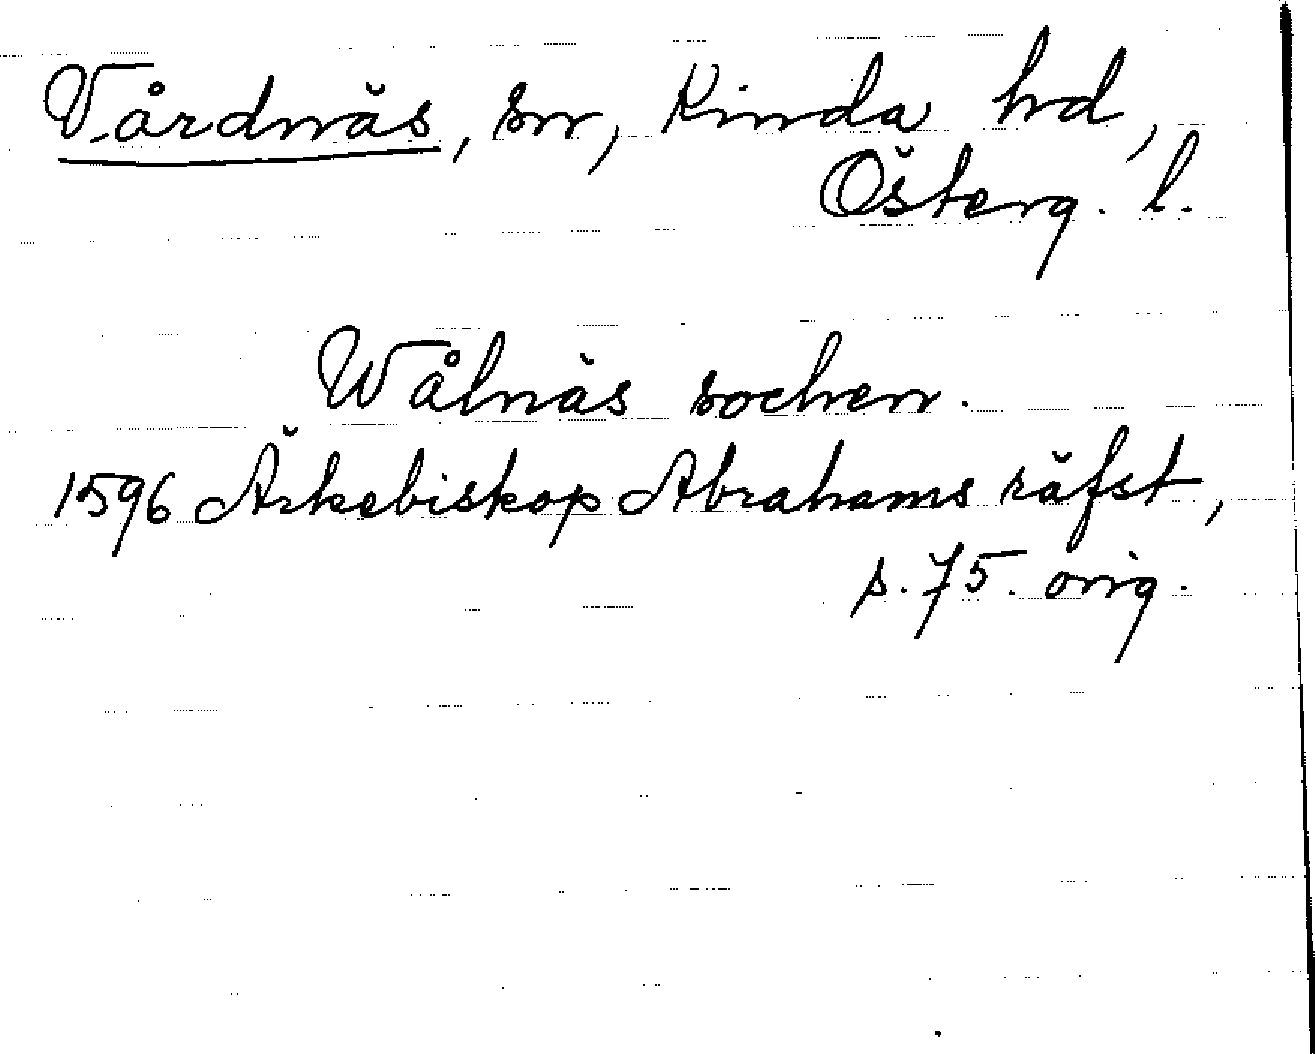 Vårdnäs, sn, Kinda hd,
Österg. l.
Wålnäs sochen.
1596 Ärkebiskop Abrahams räfst,
s. 75. orig.